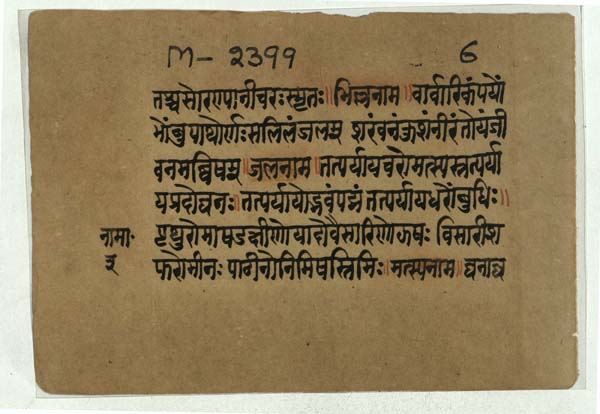 M- २३११ 6
तश्चसोरण्यपानीचरःस्मृतः॥ भिल्लनाम ॥ वार्वारिकंपयों
भोंबुपाथोर्णःसलिलंजलम् शरंवनंकुशंनीरंतोयंजी
वनमब्विषम् ॥ जलनाम ॥ तत्पर्यायचरोमत्स्यस्तत्पर्या
यप्रदोघनः तत्पर्यायोद्भवंपद्मं तत्पर्यायधरोंबुधिः॥
नामा॰ पृथुरोमाषडक्षीणोयादोवैसारिणोझषः विसारीश
३ फरोमीनः पाठीनोनिमिषस्तिमिः॥ मत्स्यनाम ॥ घनाघ